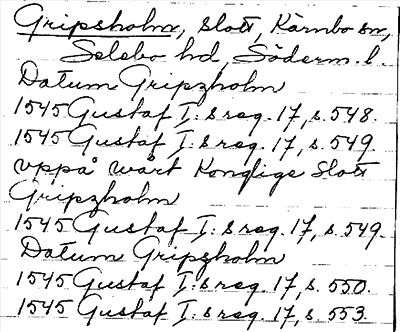 Gripsholm, slott, Kärnbo sn,
Selebo hd, Söderm. l.
Datum Gripzholm
1545 Gustaf I:s reg. 17, s. 548.
1545 Gustaf I:s reg. 17, s. 549.
vppå wårt Konglige Slott
Gripzholm
1545 Gustaf I:s reg. 17, s. 549.
Datum Gripzholm
1545 Gustaf I:s reg. 17, s. 550.
1545 Gustaf I:s reg. 17, s. 553.